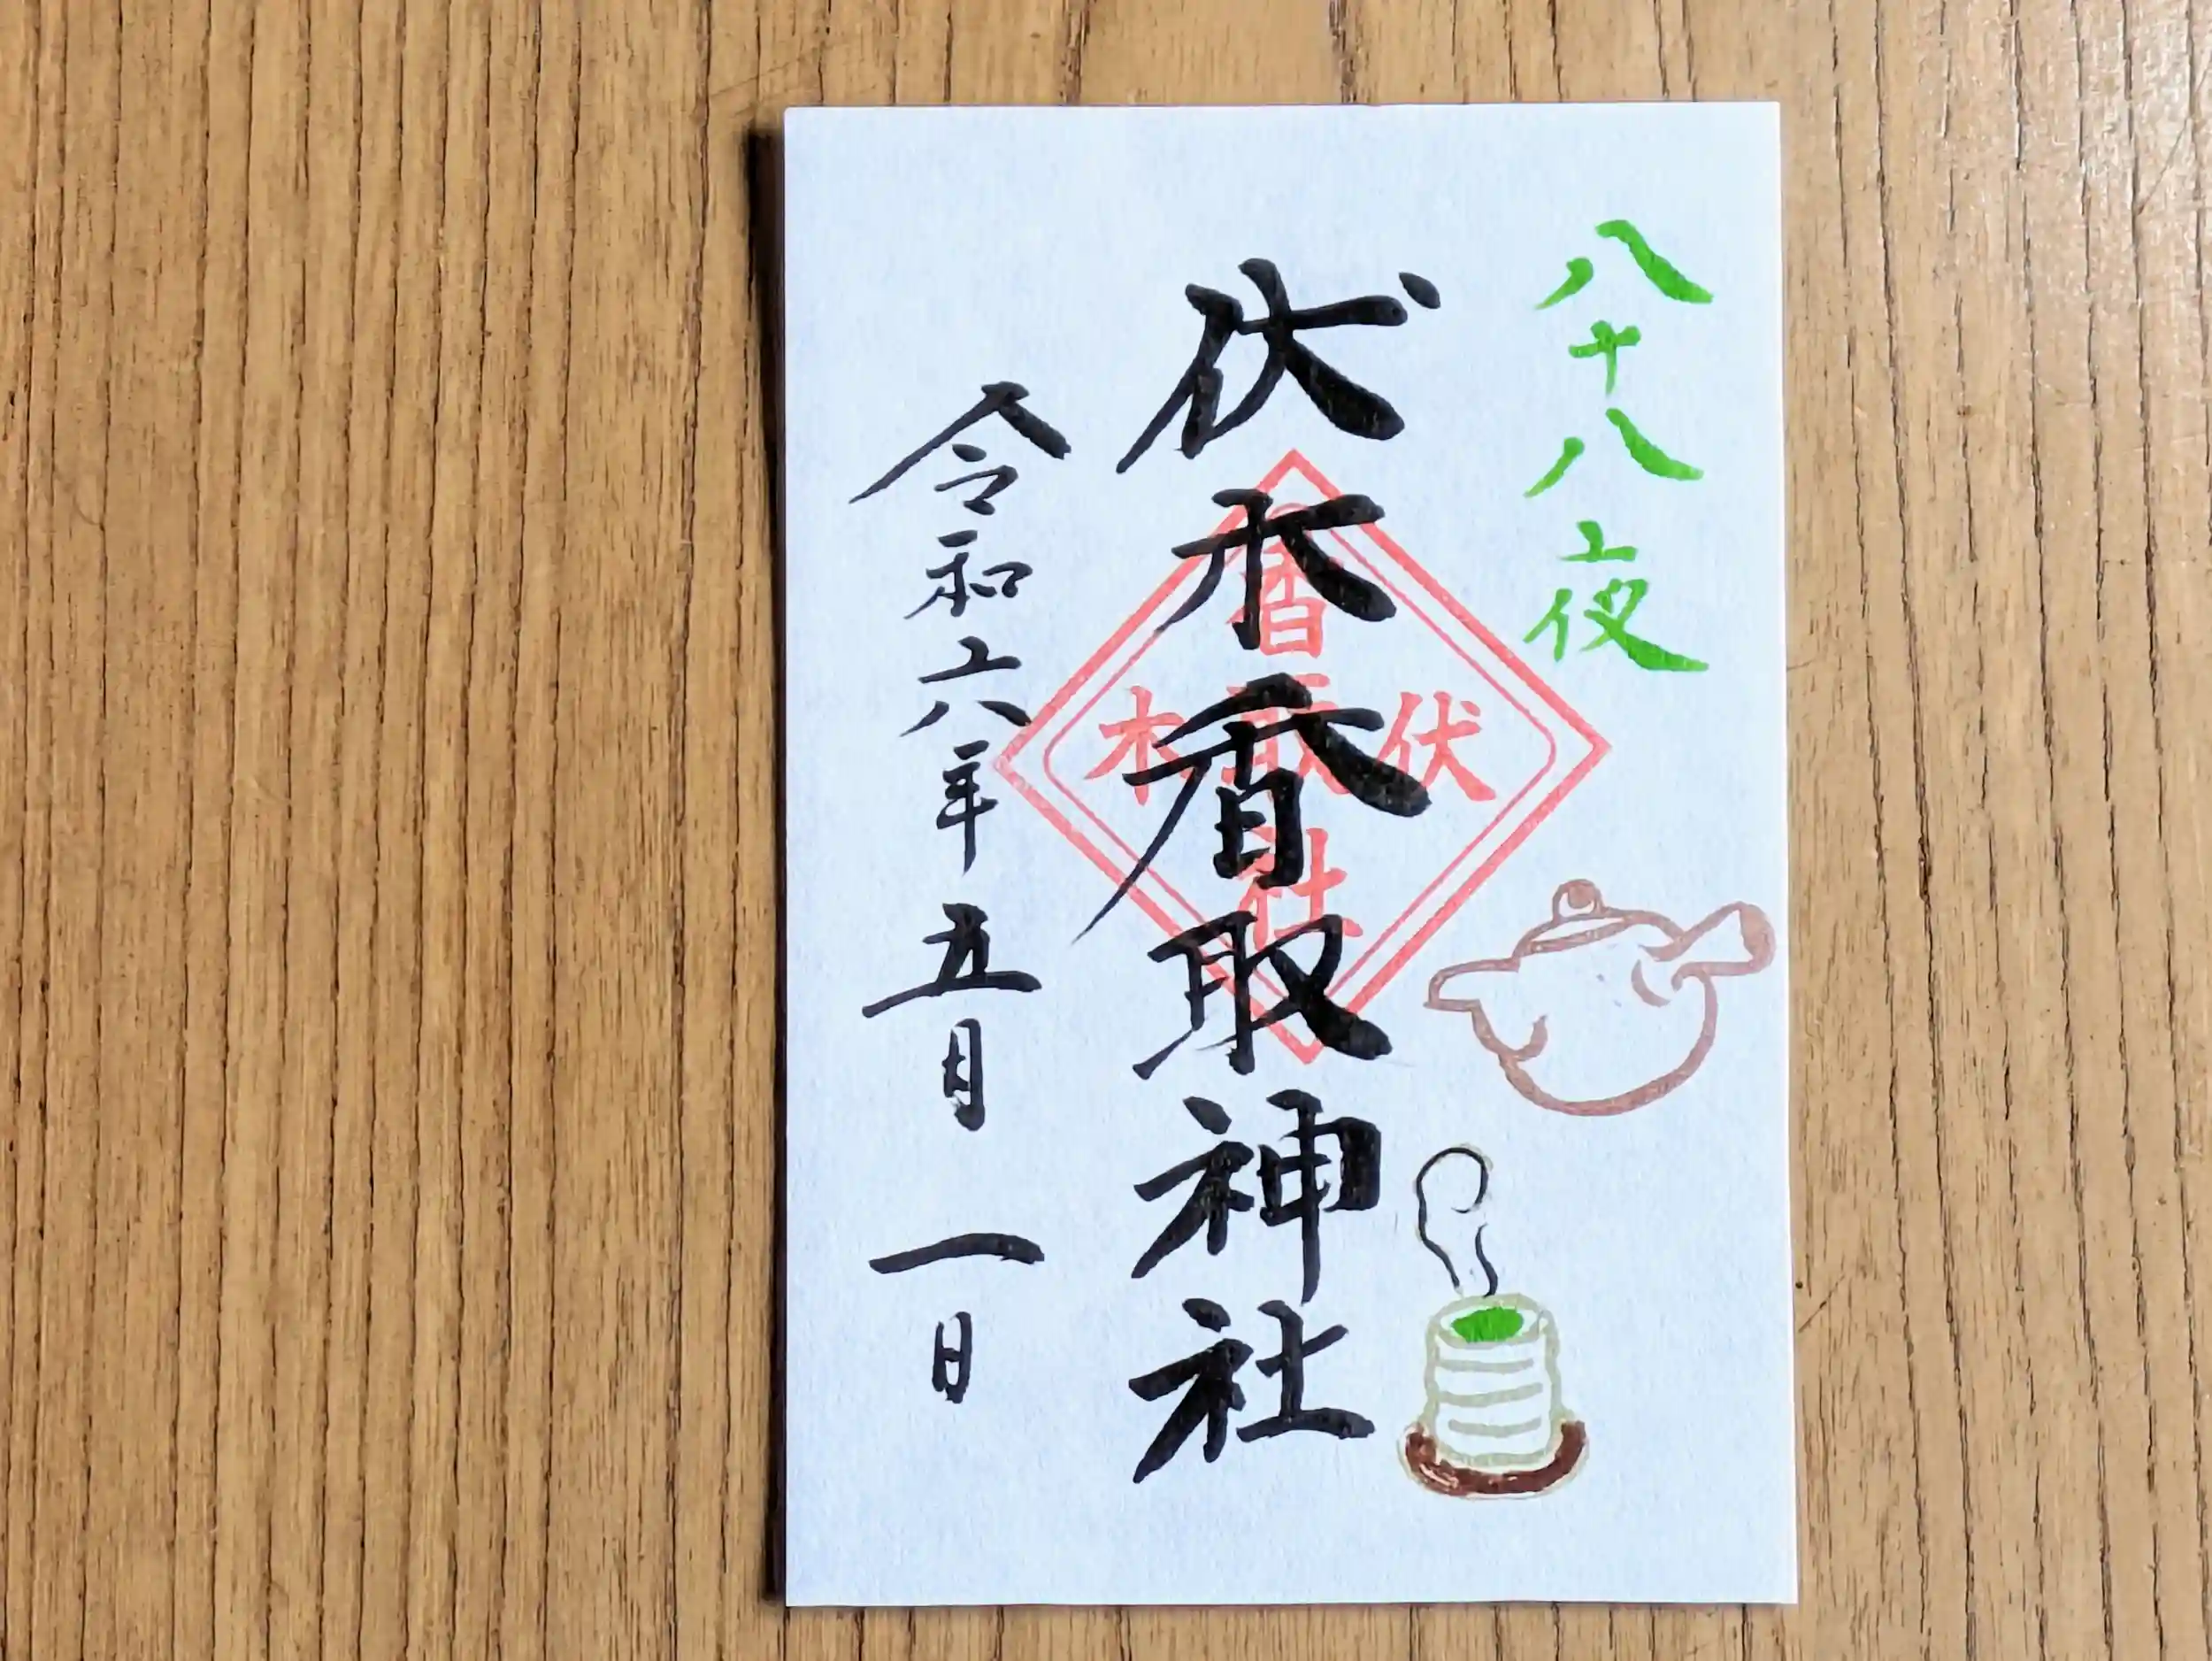 八十八夜
伏木香取神社
香取社
伏木
令和六年五月一日